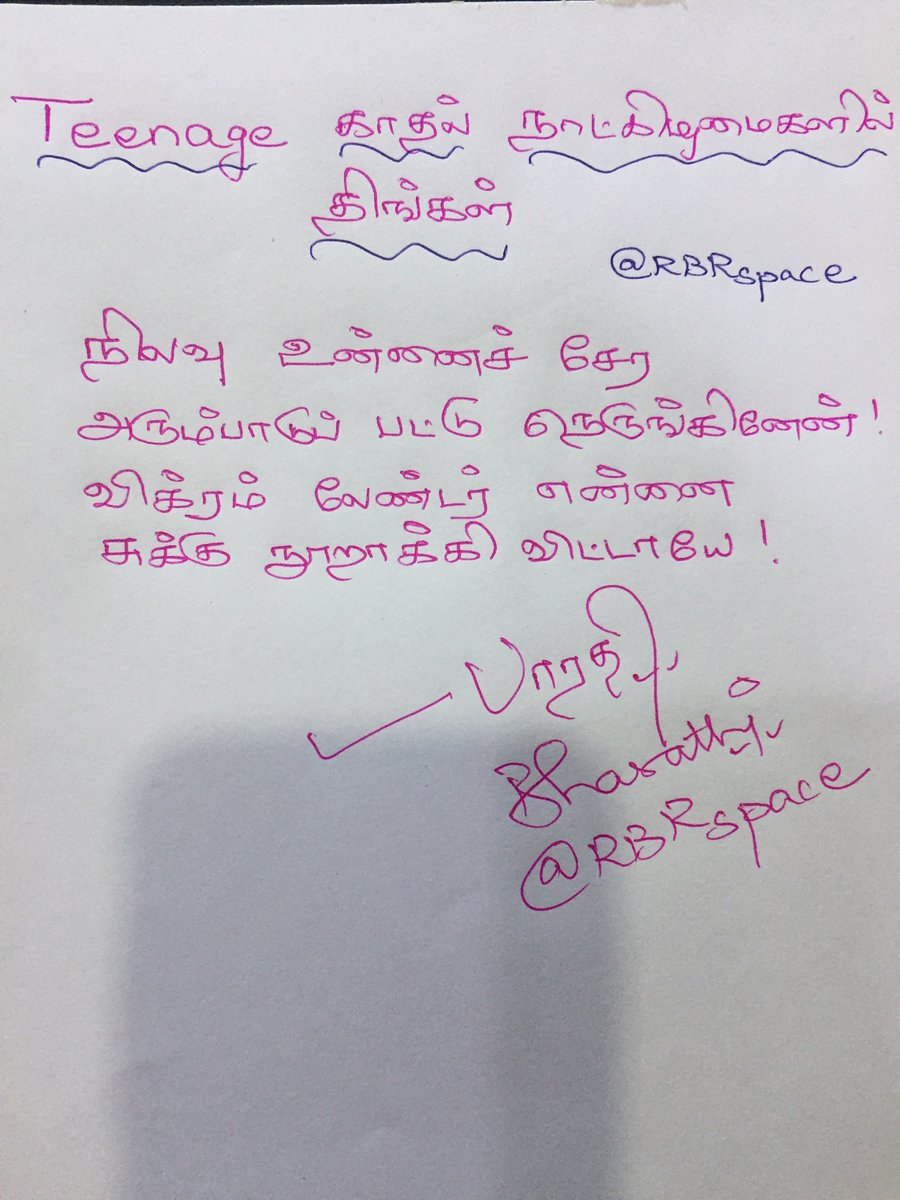 Teenage காதல் நாட்கிழமைகளில்
திங்கள்
@RBRspace
நிலவு உன்னைச் சேர
அரும்பாடுப் பட்டு நெருங்கினேன்!
விக்ரம் லேண்டர் என்னை
சுக்கு நூறாக்கி விட்டாயே!
பாரதி
Bharathi
@RBRspace